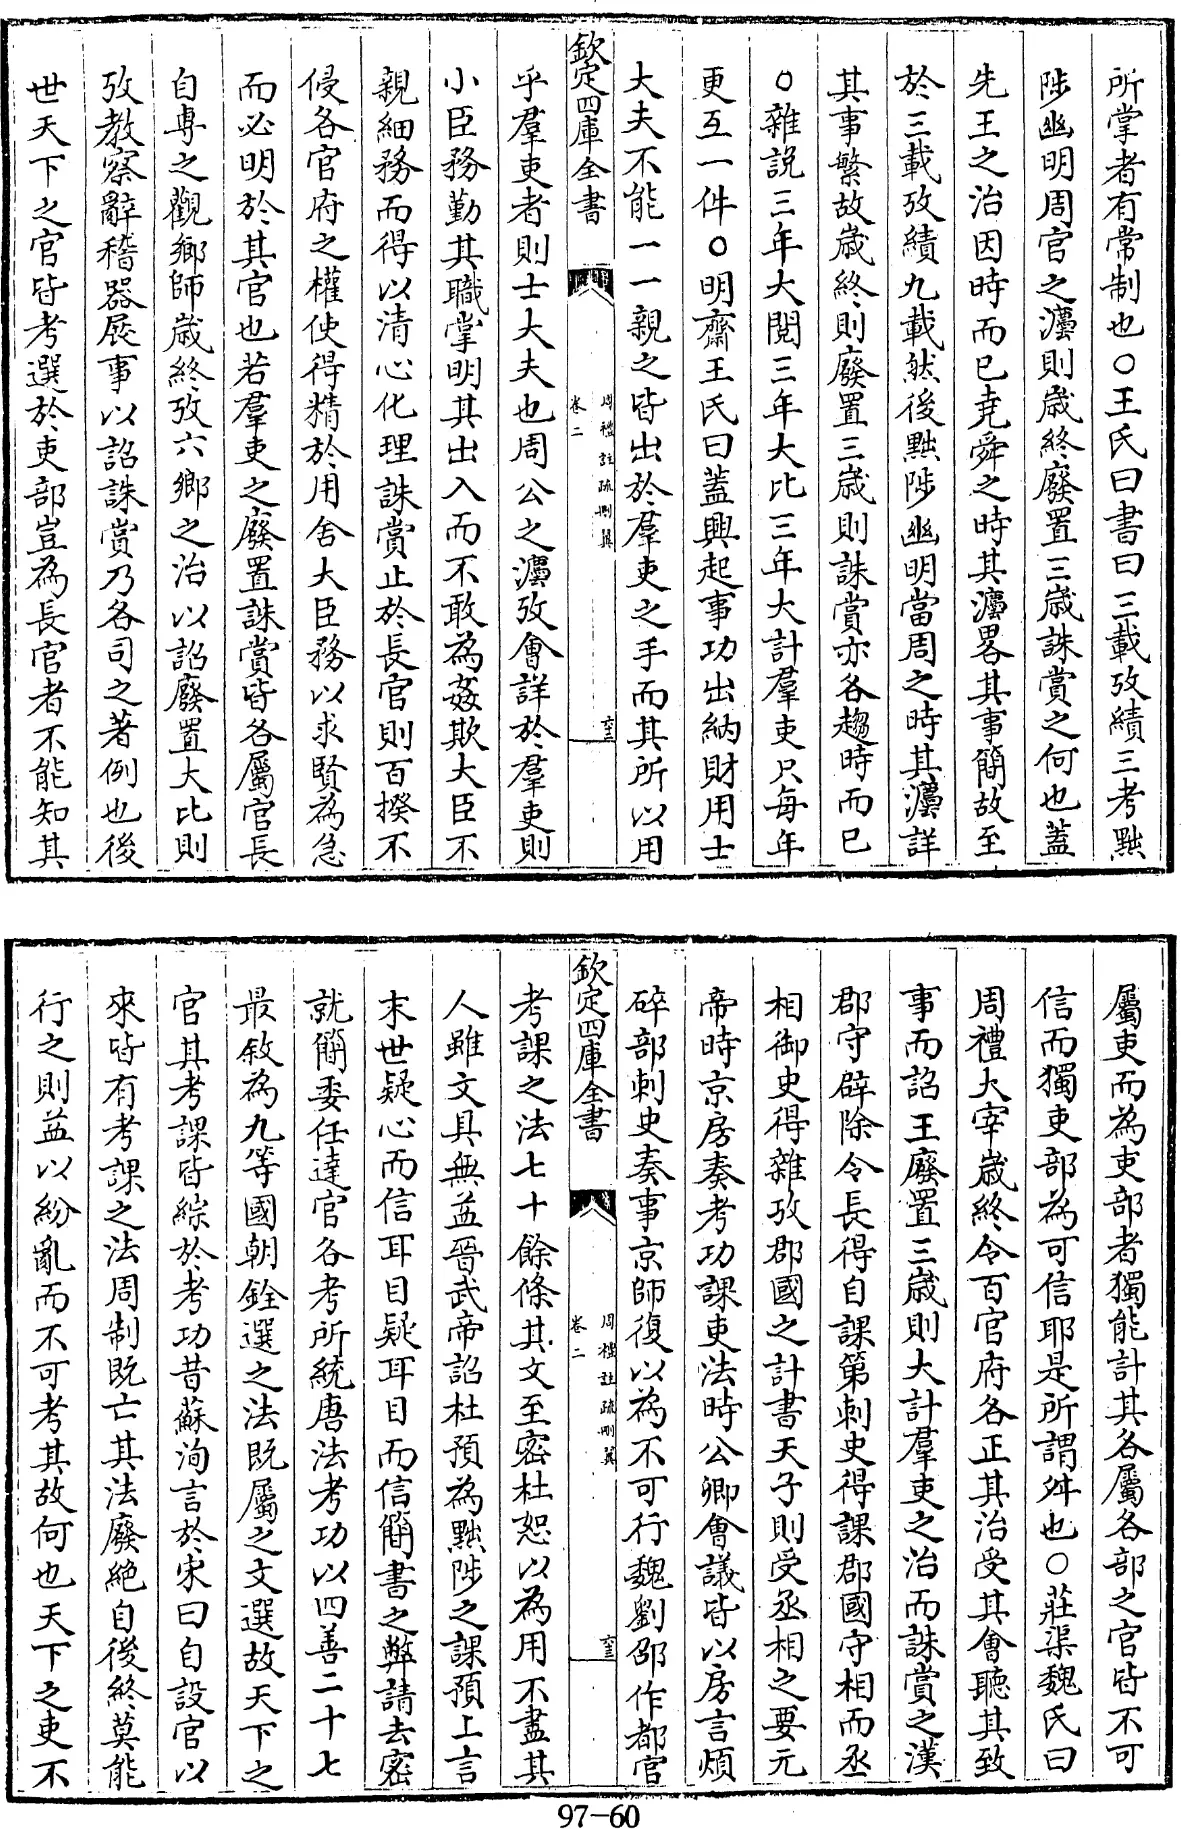 所掌者有常制也○王氏曰書曰三載攷績三考黜
陟幽明周官之灋則歲終廢置三歲誅賞之何也蓋
先王之治因時而已堯舜之時其灋畧其事簡故至
於三載攷績九載然後黜陟幽明當周之時其灋詳
其事繁故歲終則廢置三歲則誅賞亦各趨時而已
○雜說三年大閱三年大比三年大計羣吏只每年
更互一件○明齋王氏曰蓋興起事功出納財用士
大夫不能一一親之皆出於羣吏之手而其所以用
欽定四庫全書
周禮註疏刪翼
卷二
乎羣吏者則士大夫也周公之灋攷會詳於羣吏則
小臣務勤其職掌明其出入而不敢為姦欺大臣不
親細務而得以清心化理誅賞止於長官則百揆不
侵各官府之權使得精於用舍大臣務以求賢為急
而必明於其官也若羣吏之廢置誅賞皆各屬官長
自專之觀鄉師歲終攷六鄉之治以詔廢置大比則
攷教察辭稽器展事以詔誅賞乃各司之著例也後
世天下之官皆考選於吏部豈為長官者不能知其
屬吏而為吏部者獨能計其各屬各部之官皆不可
信而獨吏部為可信耶是所謂舛也○莊渠魏氏曰
周禮大宰歲終令百官府各正其治受其會聽其致
事而詔王廢置三歲則大計羣吏之治而誅賞之漢
郡守辟除令長得自課第刺史得課郡國守相而丞
相御史得雜攷郡國之計書天子則受丞相之要元
帝時京房奏考功課吏法時公卿會議皆以房言煩
碎部刺史奏事京師復以為不可行魏劉邵作都官
欽定四庫全書
周禮註疏刪翼
卷二
考課之法七十餘條其文至密杜恕以為用不盡其
人雖文具無益晉武帝詔杜預為黜陟之課預上言
末世疑心而信耳目疑耳目而信簡書之弊請去密
就簡委任達官各考所統唐法考功以四善二十七
最敘為九等國朝銓選之法既屬之文選故天下之
官其考課皆綜於考功昔蘇洵言於宋曰自設官以
來皆有考課之法周制既亡其法廢絕自後終莫能
行之則益以紛亂而不可考其故何也天下之吏不
97-60